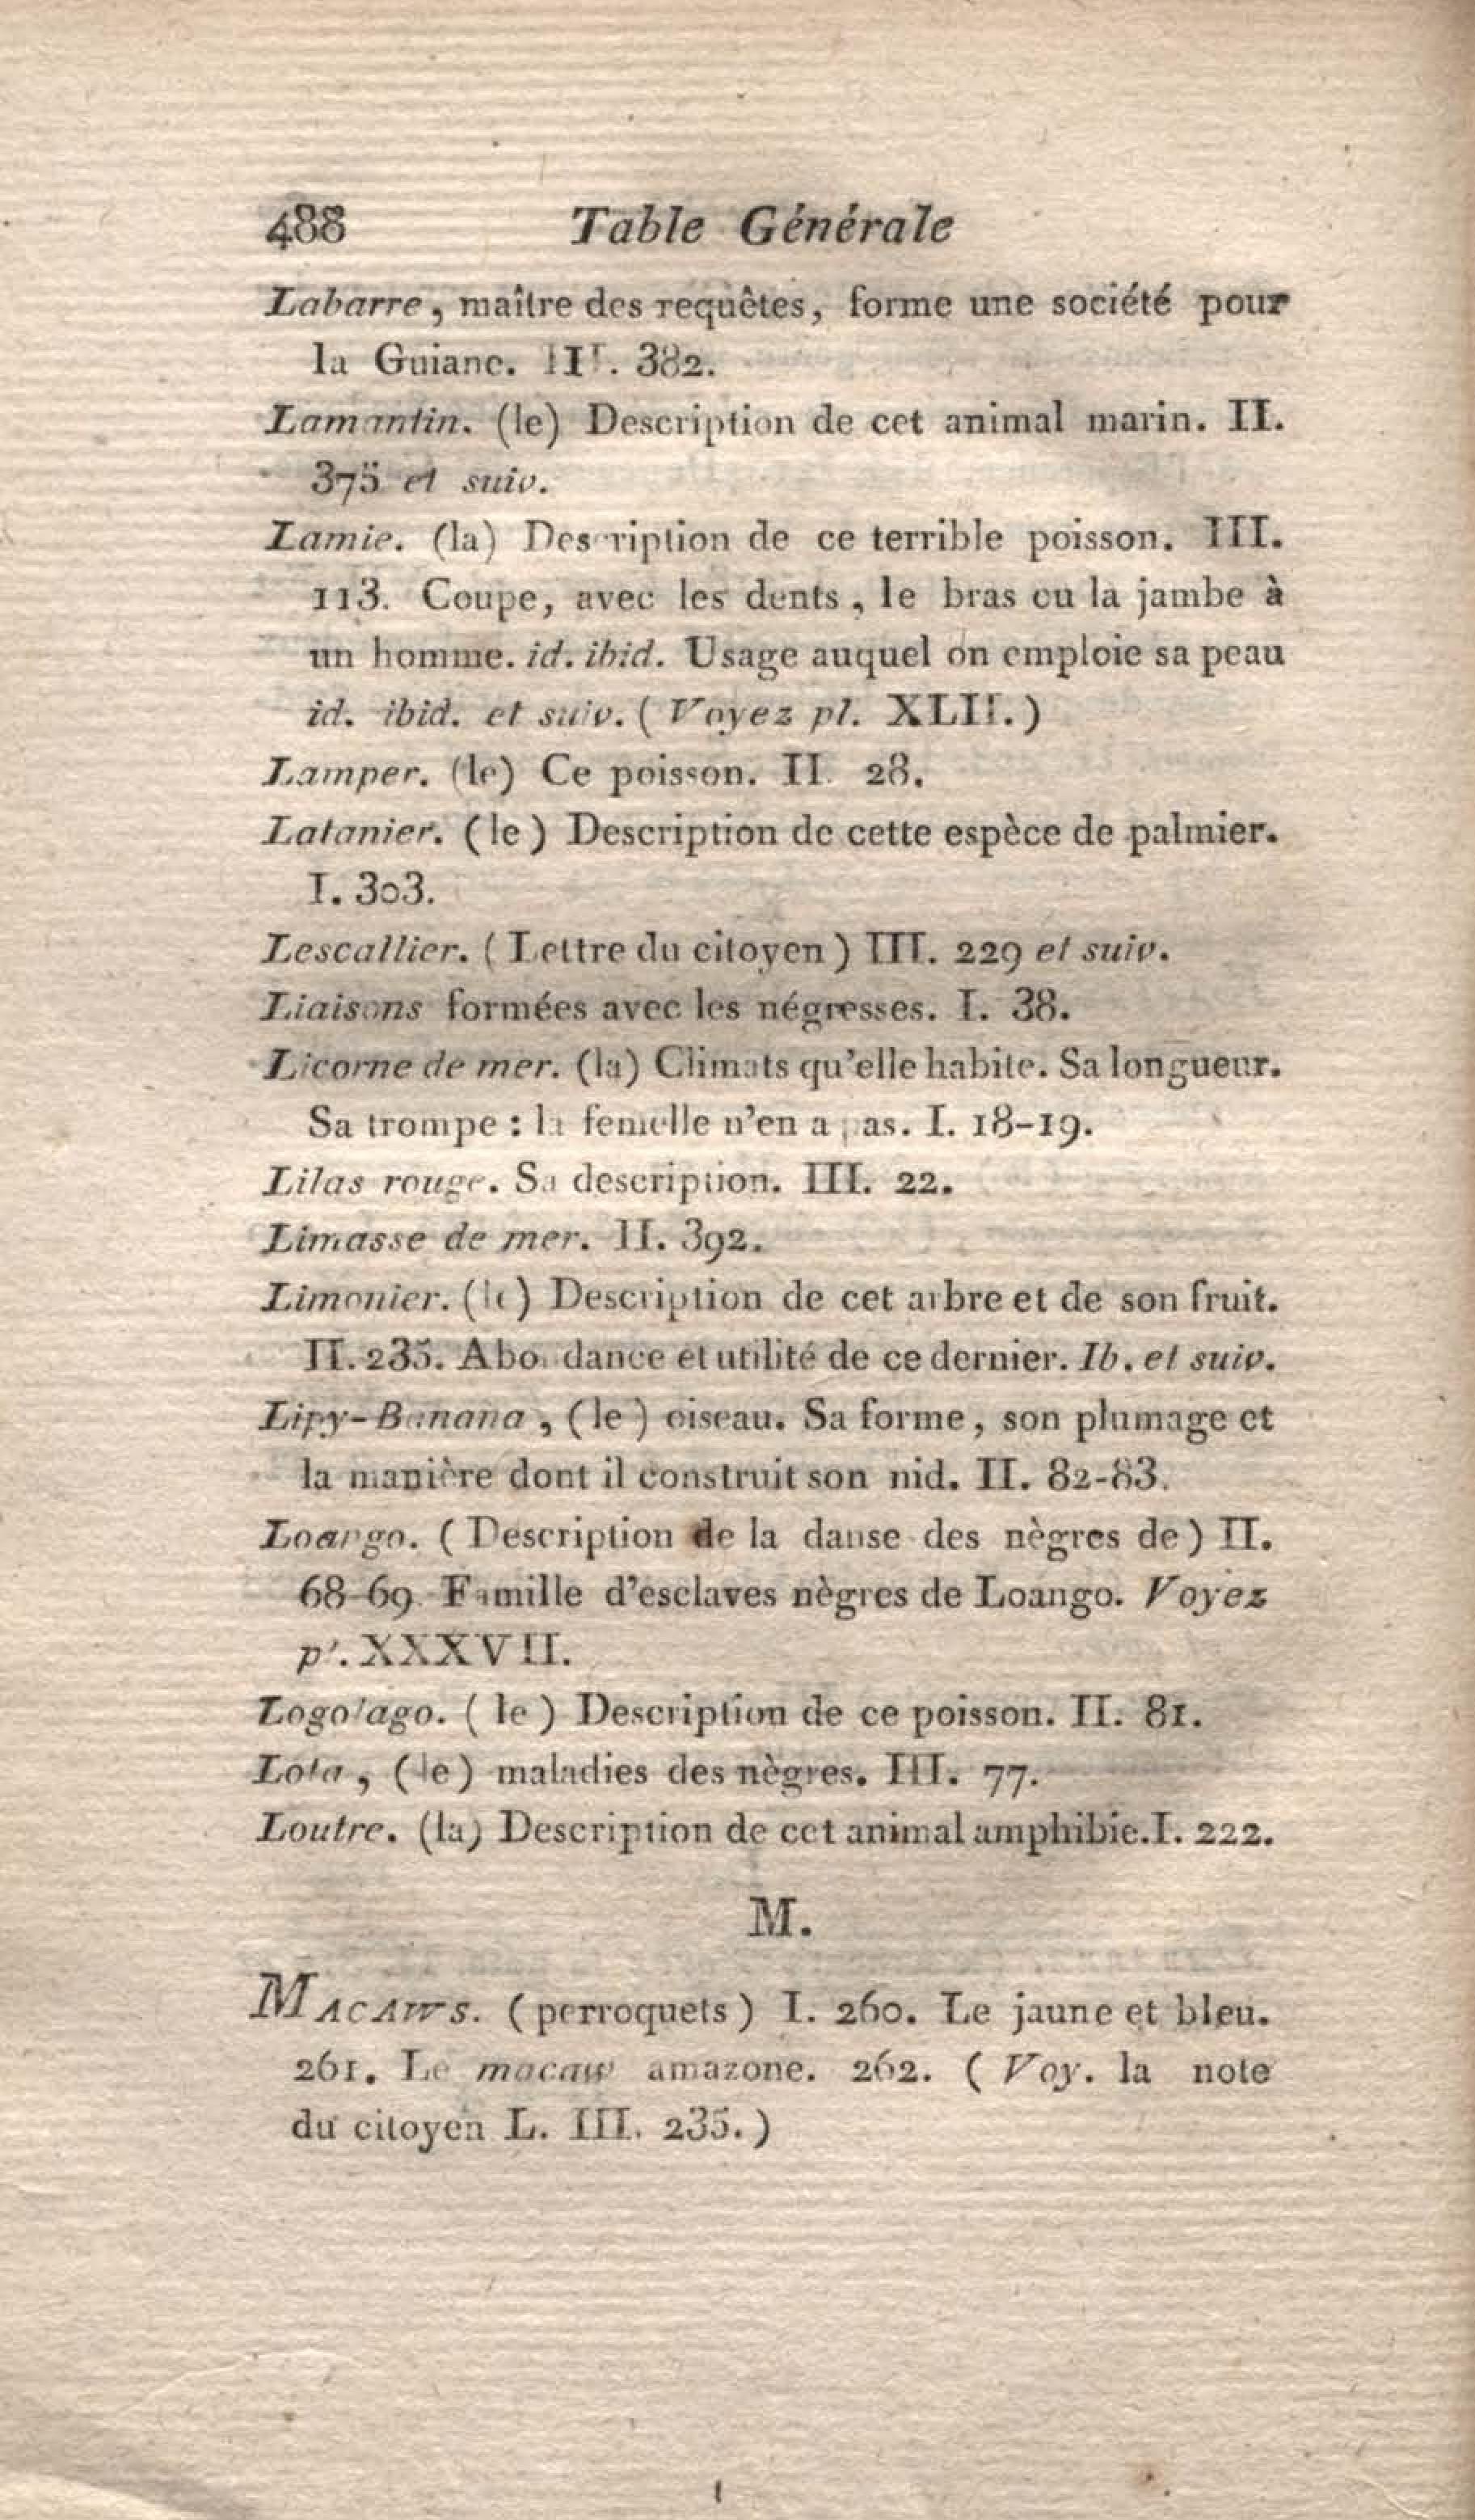 488 Table Générale
Labarre, maître des requêtes, forme une société pour
la Guiane. III. 382.
Lamantin. (le) Description de cet animal marin. II.
375 et suiv.
Lamie. (la) Description de ce terrible poisson. III.
113. Coupe, avec les dents, le bras ou la jambe à
un homme. id. ibid. Usage auquel on emploie sa peau
id. ibid. et suiv. (Voyez pl. XLII.)
Lamper. (le) Ce poisson. II. 28.
Latanier. (le) Description de cette espèce de palmier.
I. 303.
Lescallier. (Lettre du citoyen) III. 229 et suiv.
Liaisons formées avec les négresses. I. 38.
Licorne de mer. (la) Climats qu'elle habite. Sa longueur.
Sa trompe : la femelle n'en a pas. I. 18-19.
Lilas rouge. Sa description. III. 22.
Limasse de mer. II. 392.
Limonier. (le) Description de cet arbre et de son fruit.
II. 235. Abondance et utilité de ce dernier. Ib. et suiv.
Lipy-Banana, (le) oiseau. Sa forme, son plumage et
la manière dont il construit son nid. II. 82-83.
Loango. (Description de la danse des nègres de) II.
68-69. Famille d'esclaves nègres de Loango. Voyez
pl. XXXVII.
Logolago. (le) Description de ce poisson. II. 81.
Lota, (le) maladies des nègres. III. 77.
Loutre. (la) Description de cet animal amphibie. I. 222.
M.
MACAWS. (perroquets) I. 260. Le jaune et bleu.
261. Le macaw amazone. 262. (Voy. la note
du citoyen L. III. 235.)